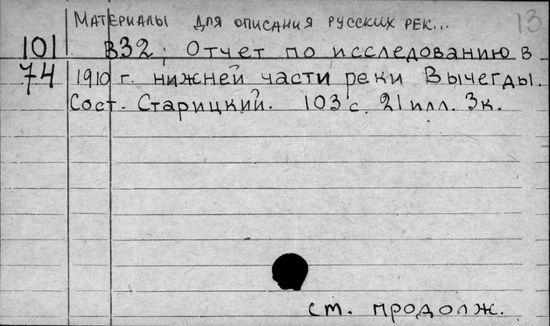 Материалы для описания русских рек... 13
101 В32; Отчет по исследованию в
74 1910 г. нижней части реки Вычегды.
Сост. Старицкий. 103 с. 21 илл. 3 к.
ст. продолж.